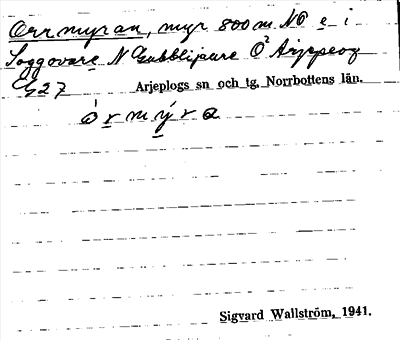 Orrmyran, myr 800 m. NO e i
Soggovare N Gubblijaure Ö² Arjeplog
G 27 Arjeplogs sn och tg, Norrbottens län.
òrmýra
Sigvard Wallström, 1941.